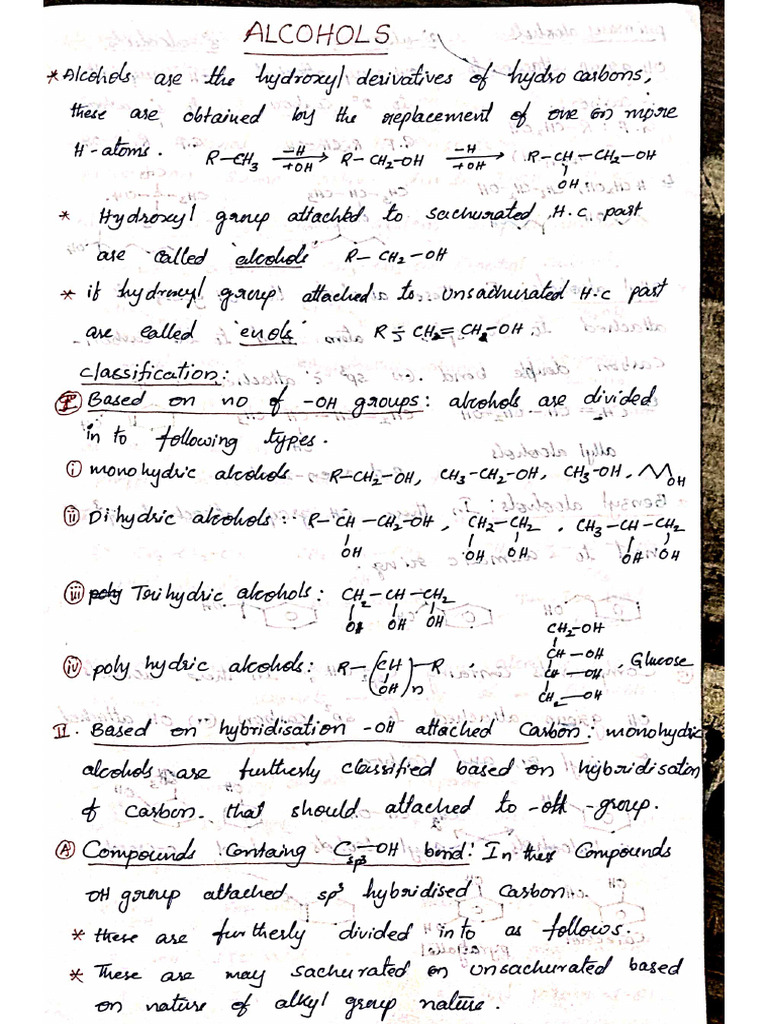 ALCOHOLS
* Alcohols are the hydroxyl derivatives of hydro carbons,
these are obtained by the replacement of one or more
H-atoms. R-CH3 -H +OH → R-CH2-OH -H +OH → R-CH-CH2-OH
OH
* Hydroxyl group attached to sachurated H.C part
are called 'alcohols' R-CH2-OH
* if hydroxyl group attached to unsachurated H.C part
are called 'enols' R-CH2=CH2-OH
classification:
I Based on no of -OH groups: alcohols are divided
in to following types.
i monohydric alcohols R-CH2-OH, CH3-CH2-OH, CH3-OH, OH
ii Dihydric alcohols: R-CH-CH2-OH, CH2-CH2, CH3-CH-CH2
OH OH OH OH OH
iii poly Trihydric alcohols: CH2-CH-CH2
OH OH OH
CH2-OH
iv poly hydric alcohols: R-(CH)n-R, CH-OH, Glucose
OH CH-OH
CH2-OH
II. Based on hybridisation -OH attached Carbon: monohydric
alcohols are furtherly classified based on hybridisation
of carbon that should attached to -OH -group.
A Compounds Containg Csp3-OH bond: In thes Compounds
OH group attached sp3 hybridised carbon.
* these are furtherly divided into as follows.
* These are may sachurated or unsachurated based
on nature of alkyl group nature.